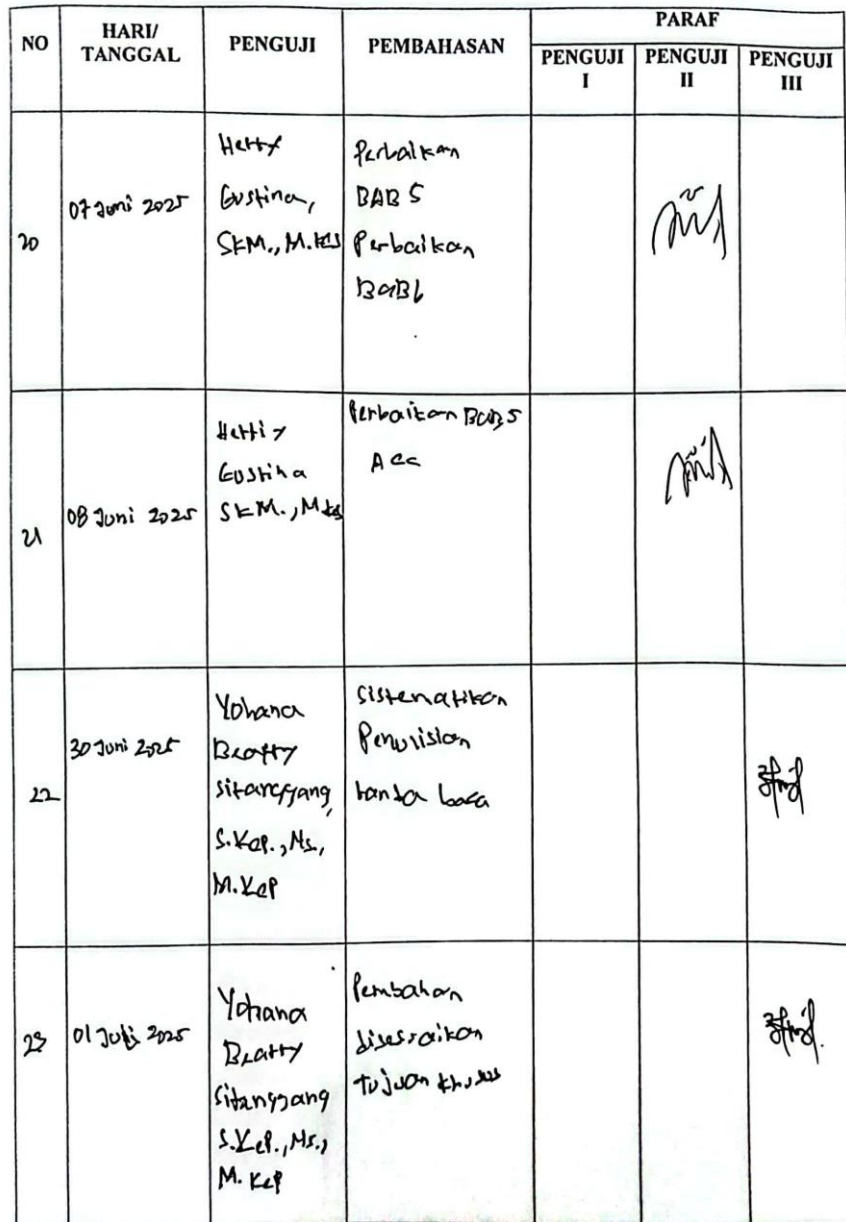 NO HARI/ TANGGAL PENGUJI PEMBAHASAN PARAF
PENGUJI I PENGUJI II PENGUJI III
20 07 Juni 2025
Hetty
Gustina,
SKM., M.Kes
Perbaikan
BAB 5
Perbaikan
BAB 6
21 08 Juni 2025
Hetti y
Gustina
SKM., M.Kes
Perbaikan BAB 5
Acc
22 30 Juni 2025
Yohana
Beatty
Sitanggang,
S.Kep., Ns.,
M.Kep
Sistematikan
Penulisan
tanda baca
23 01 Juli 2025
Yohana
Beatty
Sitanggang
S.Kep., Ns.,
M.Kep
Pembahan
disesuaikan
tujuan khusus